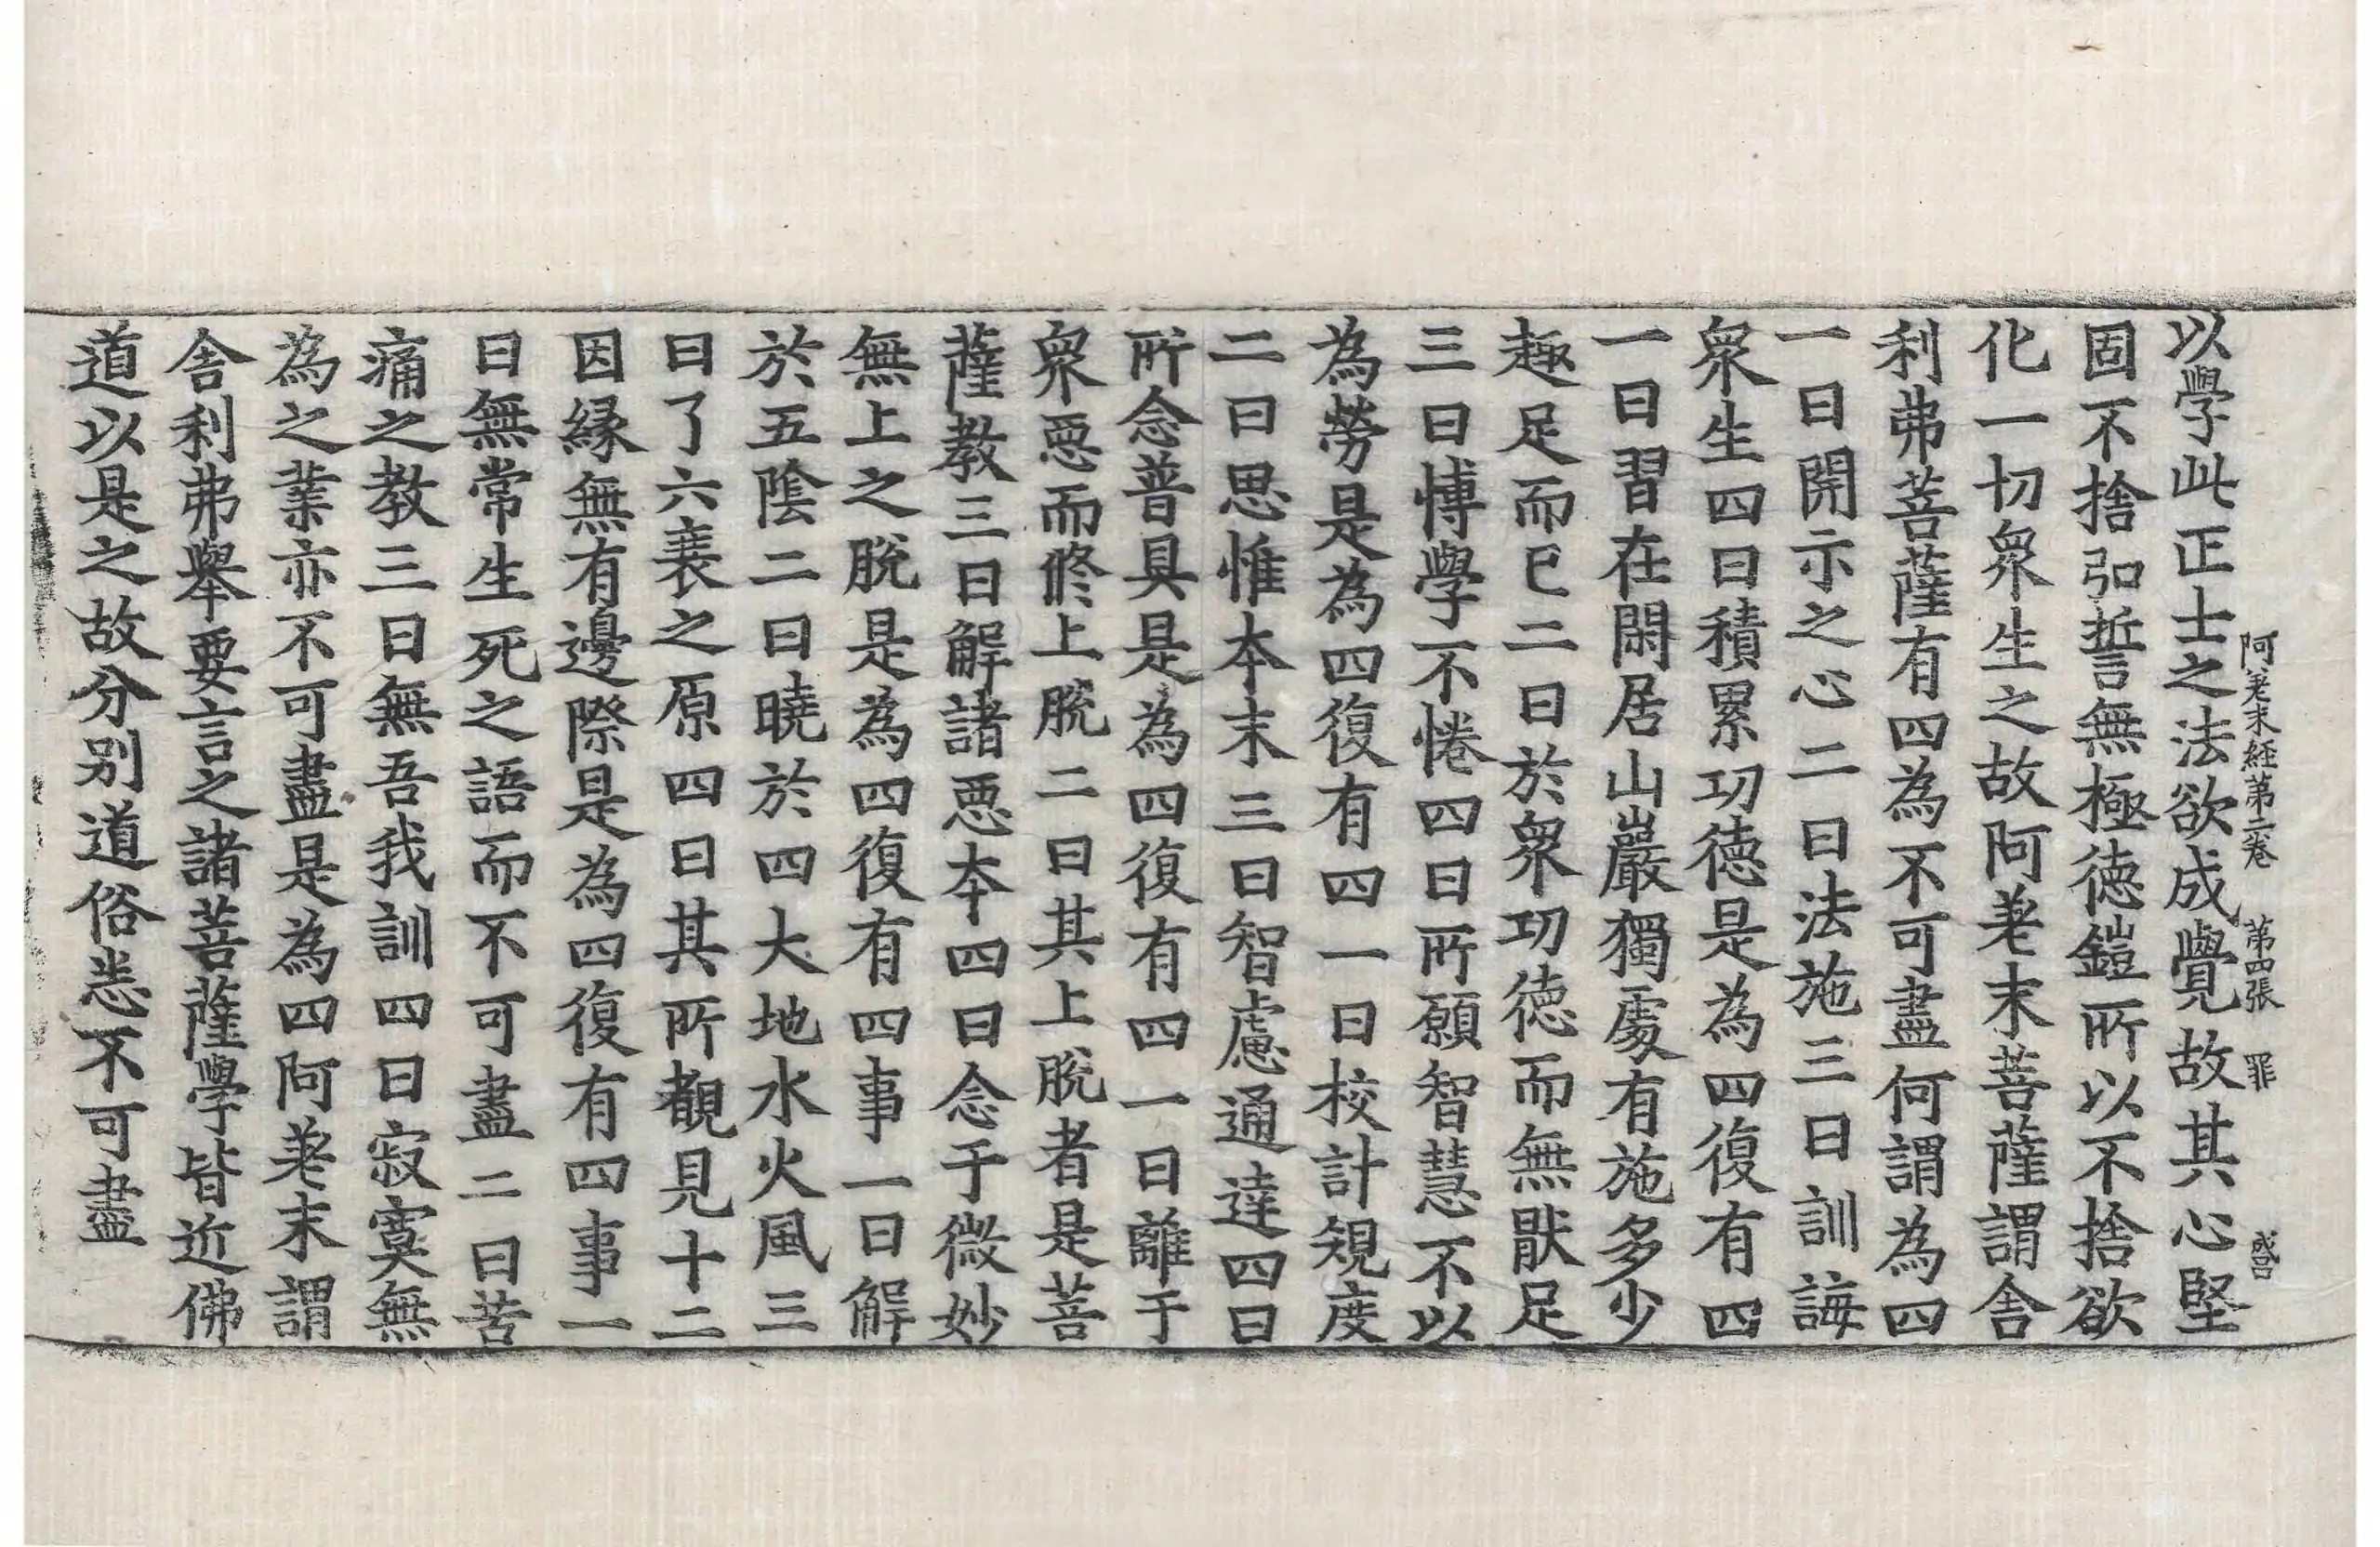 以學此正士之法欲成覺故其心堅
阿差末經第二卷 第四張 罪
固不捨弘誓無極德鎧所以不捨欲
化一切衆生之故阿差末菩薩謂舍
利弗菩薩有四為不可盡何謂為四
一曰開示之心二曰法施三曰訓誨
衆生四曰積累功德是為四復有四
一曰習在閑居山巖獨處有施多少
趣足而已二曰於衆功德而無猒足
三曰博學不惓四曰所願智慧不以
為勞是為四復有四一曰校計規度
二曰思惟本末三曰智慮通達四曰
所念普具是為四復有四一曰離于
衆惡而修上脫二曰其上脫者是菩
薩教三曰解諸惡本四曰念于微妙
無上之脫是為四復有四事一曰解
於五陰二曰曉於四大地水火風三
曰了六衰之原四曰其所覩見十二
因緣無有邊際是為四復有四事一
曰無常生死之語而不可盡二曰苦
痛之教三曰無吾我訓四曰寂寞無
為之業亦不可盡是為四阿差末謂
舍利弗舉要言之諸菩薩學皆近佛
道以是之故分別道俗悉不可盡